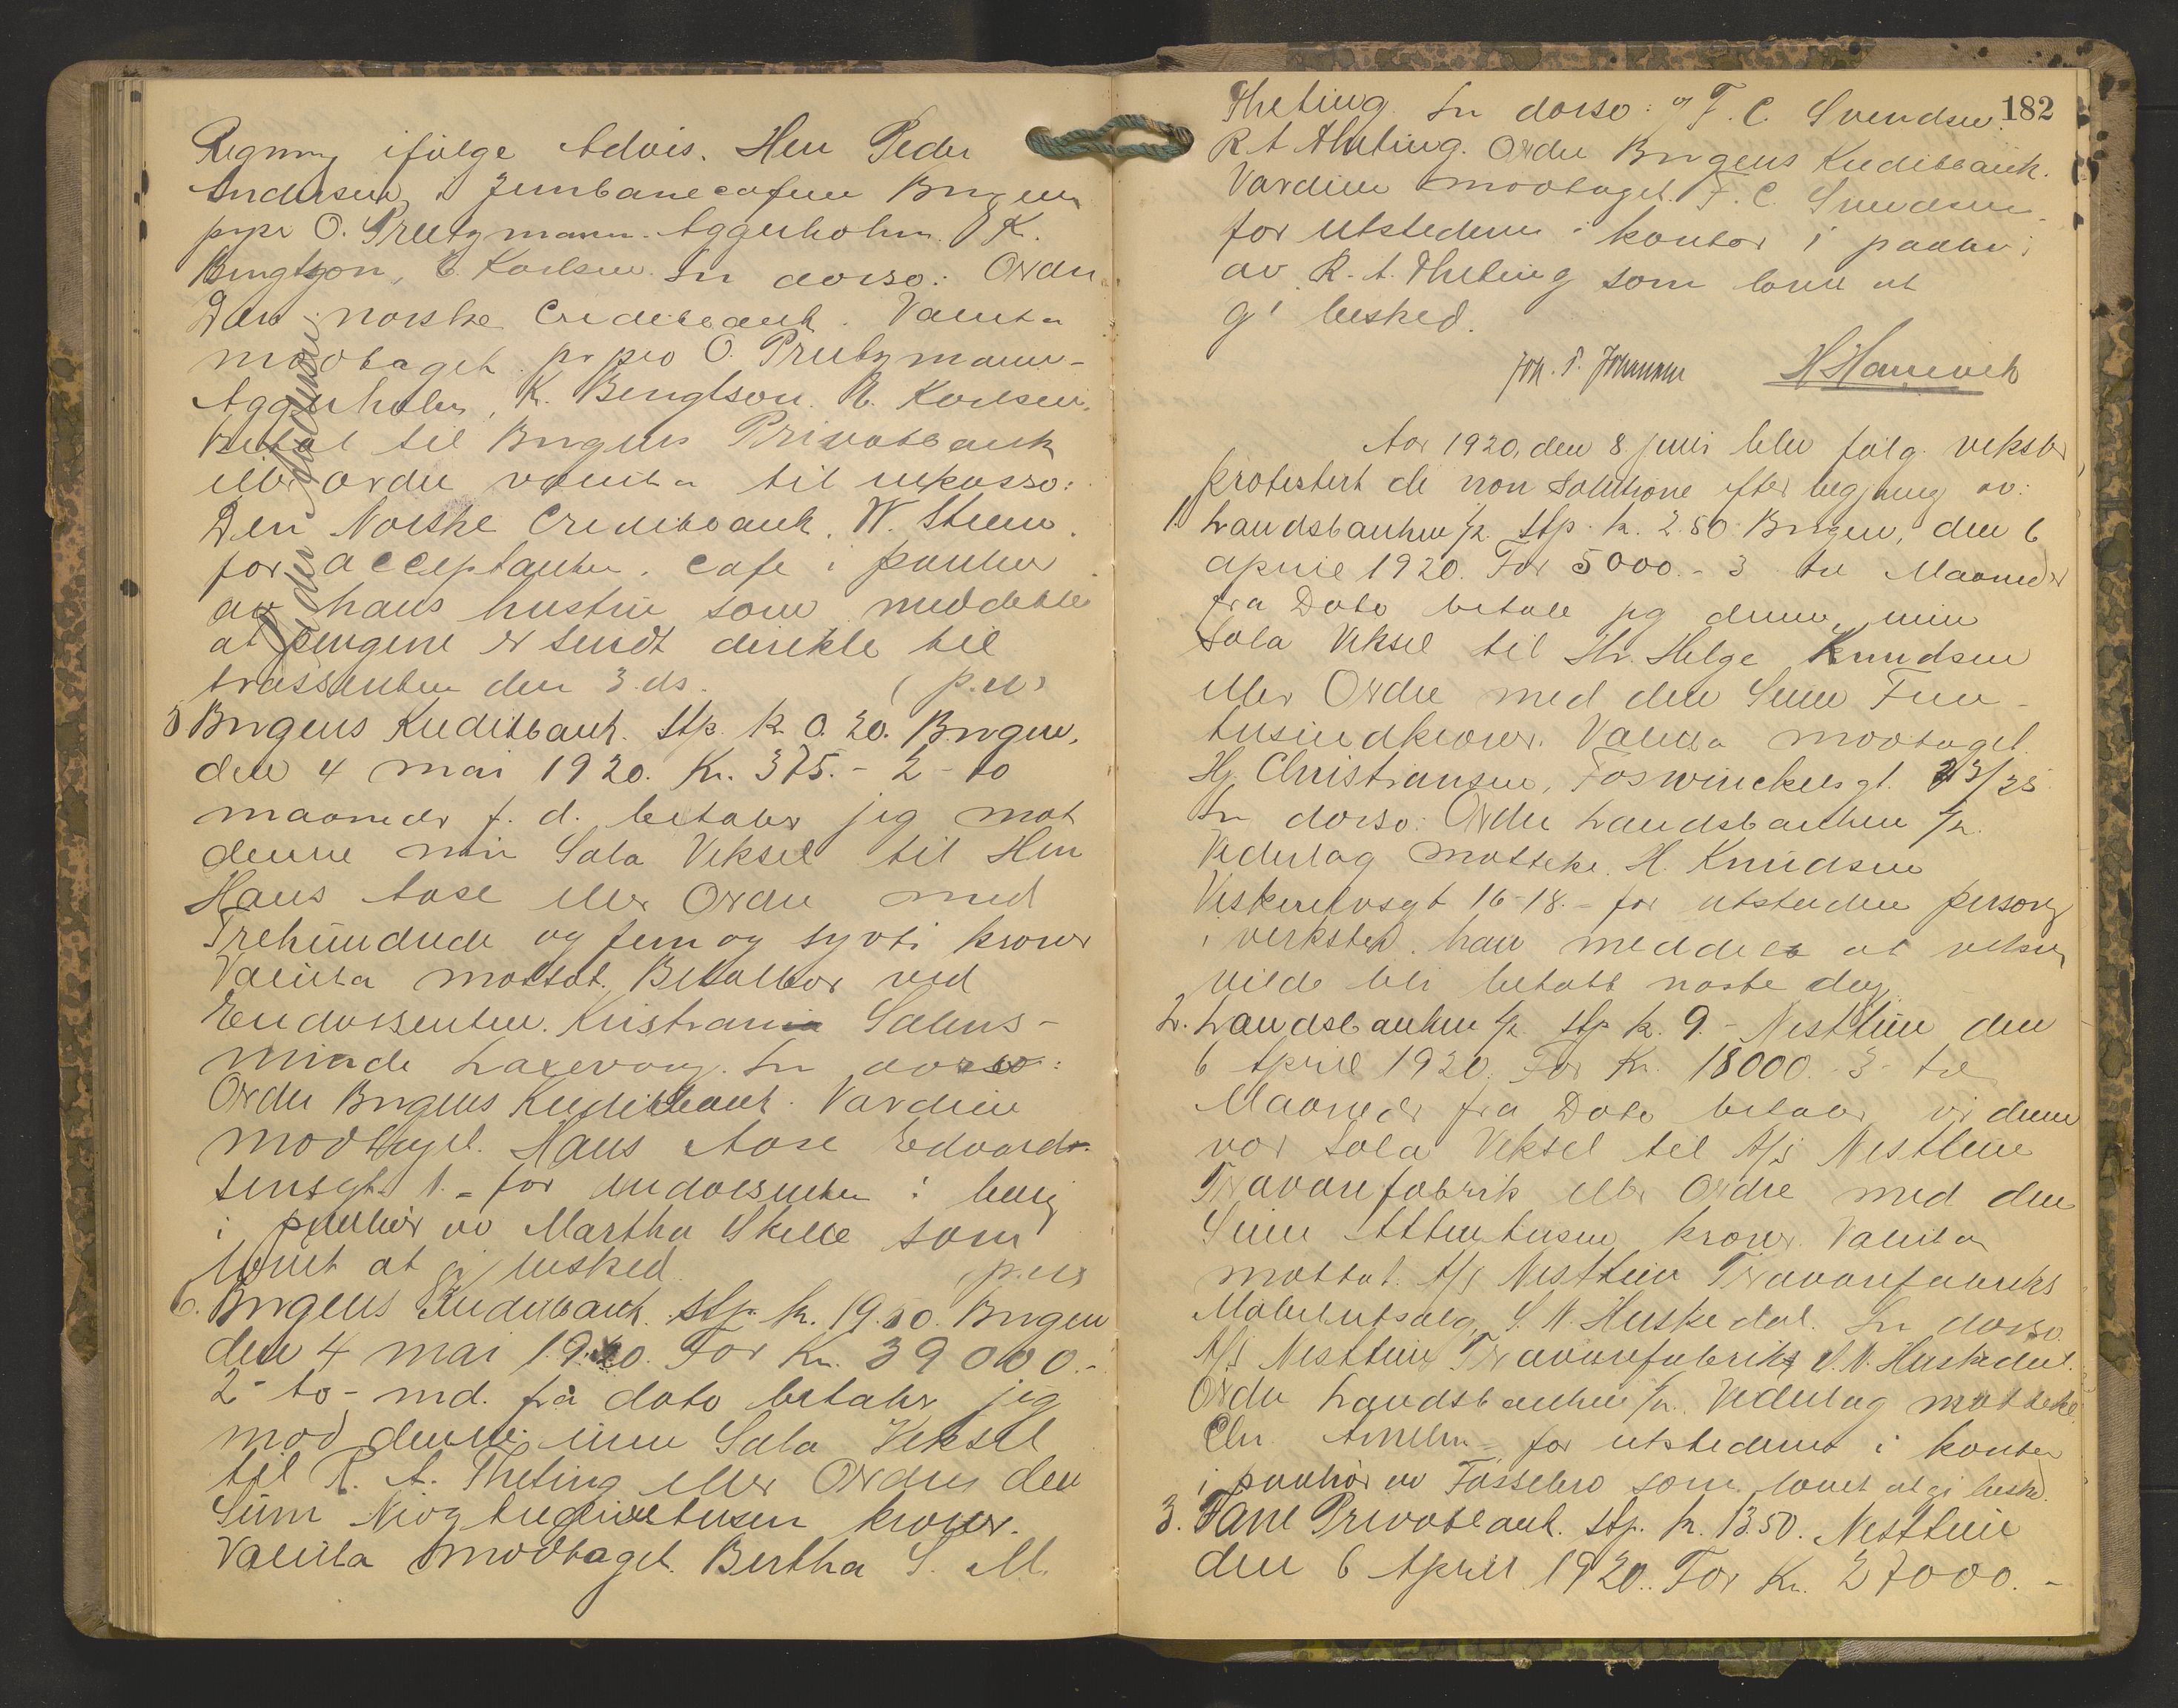 Regning ifølge Advis. Herr Peder
Andersen, Jernbanecafeen Bergen
pr pr O. Preutzmann-Aggerholm. K.
Bengtson, E. Karlsen. In dorso: Ordre
Den norske Creditbank. Valuta
modtaget pr pro O. Preutzmann-
Aggerholm, K. Bengtson. E. Karlsen.
Betal til Bergens Privatbank
eller ordre valuta til inkasso:
Den Norske Creditbank. W. Steen.
for acceptanten. Cafe i paahør
av hans hustru som meddelte
at pengene er sendt direkte til
trassenten den 3. ds. (p.u)
5 Bergens Kreditbank. Stp. kr. 0.20. Bergen,
den 4 mai 1920. Kr. 375.- 2- to
maaneder f. d. betaler jeg mot
denne min Sola Veksel til Herr
Hans Aase eller Ordre med
Trehundrede og fem og sytti kroner
Valuta mottat. Betalbar ved
Endossenten. Kristiania Salhus-
minde Laxevaag. In dorso:
Ordre Bergens Kreditbank. Værdien
modtaget. Hans Aase Edvard-
sensgt. 1. - for endossenten i bolig
i paahør av Martha Skeie som
lovet at gi besked. (p.u)
6. Bergens Kreditbank. Stp. kr. 19.50. Bergen
den 4 mai 1920. For Kr. 39000.-
2- to- md. fra dato betaler jeg
mod denne min Sola Veksel
til R. A. Theting eller Ordre den
Sum Niogtredivetusen kroner.
Valuta modtaget. Bertha S. M.
182
Theting. In dorso: F. C. Svendsen.
R A Theting. Ordre Bergens Kreditbank.
Værdien modtaget. F. C. Svendsen.
for utstederen i kontor i paahør
av R. A. Theting som lovet at
gi besked.
Joh. P. Johannesen
Aar 1920, den 8. juli blev følg. veksler
protestert de non solutione efter begjæring av:
1 Landsbanken A/S. Stp. kr. 2.50 Bergen, den 6
april 1920. For 5000.- 3 tre Maaneder
fra Dato betale jeg denne min
Sola Veksel til Hr. Helge Knudsen
eller Ordre med den Sum Fem-
tusindkroner. Valuta modtaget.
Hj. Christiansen, Foswinckelsgt. 23/25
In dorso: Ordre Landsbanken A/S.
Vederlag motteke. H. Knudsen
16-18.- for utstederen personlig
i verksted. han meddelte at vekselen
vilde bli betalt næste dag.
2. Landsbanken A/S Stp kr. 9.- Nesttun den
6 April 1920. For Kr. 18000.- 3- tre
Maaneder fra Dato betaler vi denne
vor Sola Veksel til A/S Nesttun
Trævarefabrik eller Ordre med den
Sum Atten tusen kroner. Valuta
mottat. A/S Nesttun Trævarefabriks
Møbelutsalg, S. N. Huskedal. In dorso
A/S Nesttun Trævarefabrik, S. N. Huskedal.
Ordre Landsbanken A/S. Vederlag motteke.
Chr. for utstederen i kontor
i paahør av Fossebro som lovet at gi besked.
3. Fane Privatbank. Stp. kr. 13.50. Nesttun
den 6 April 1920. For Kr. 27000.-